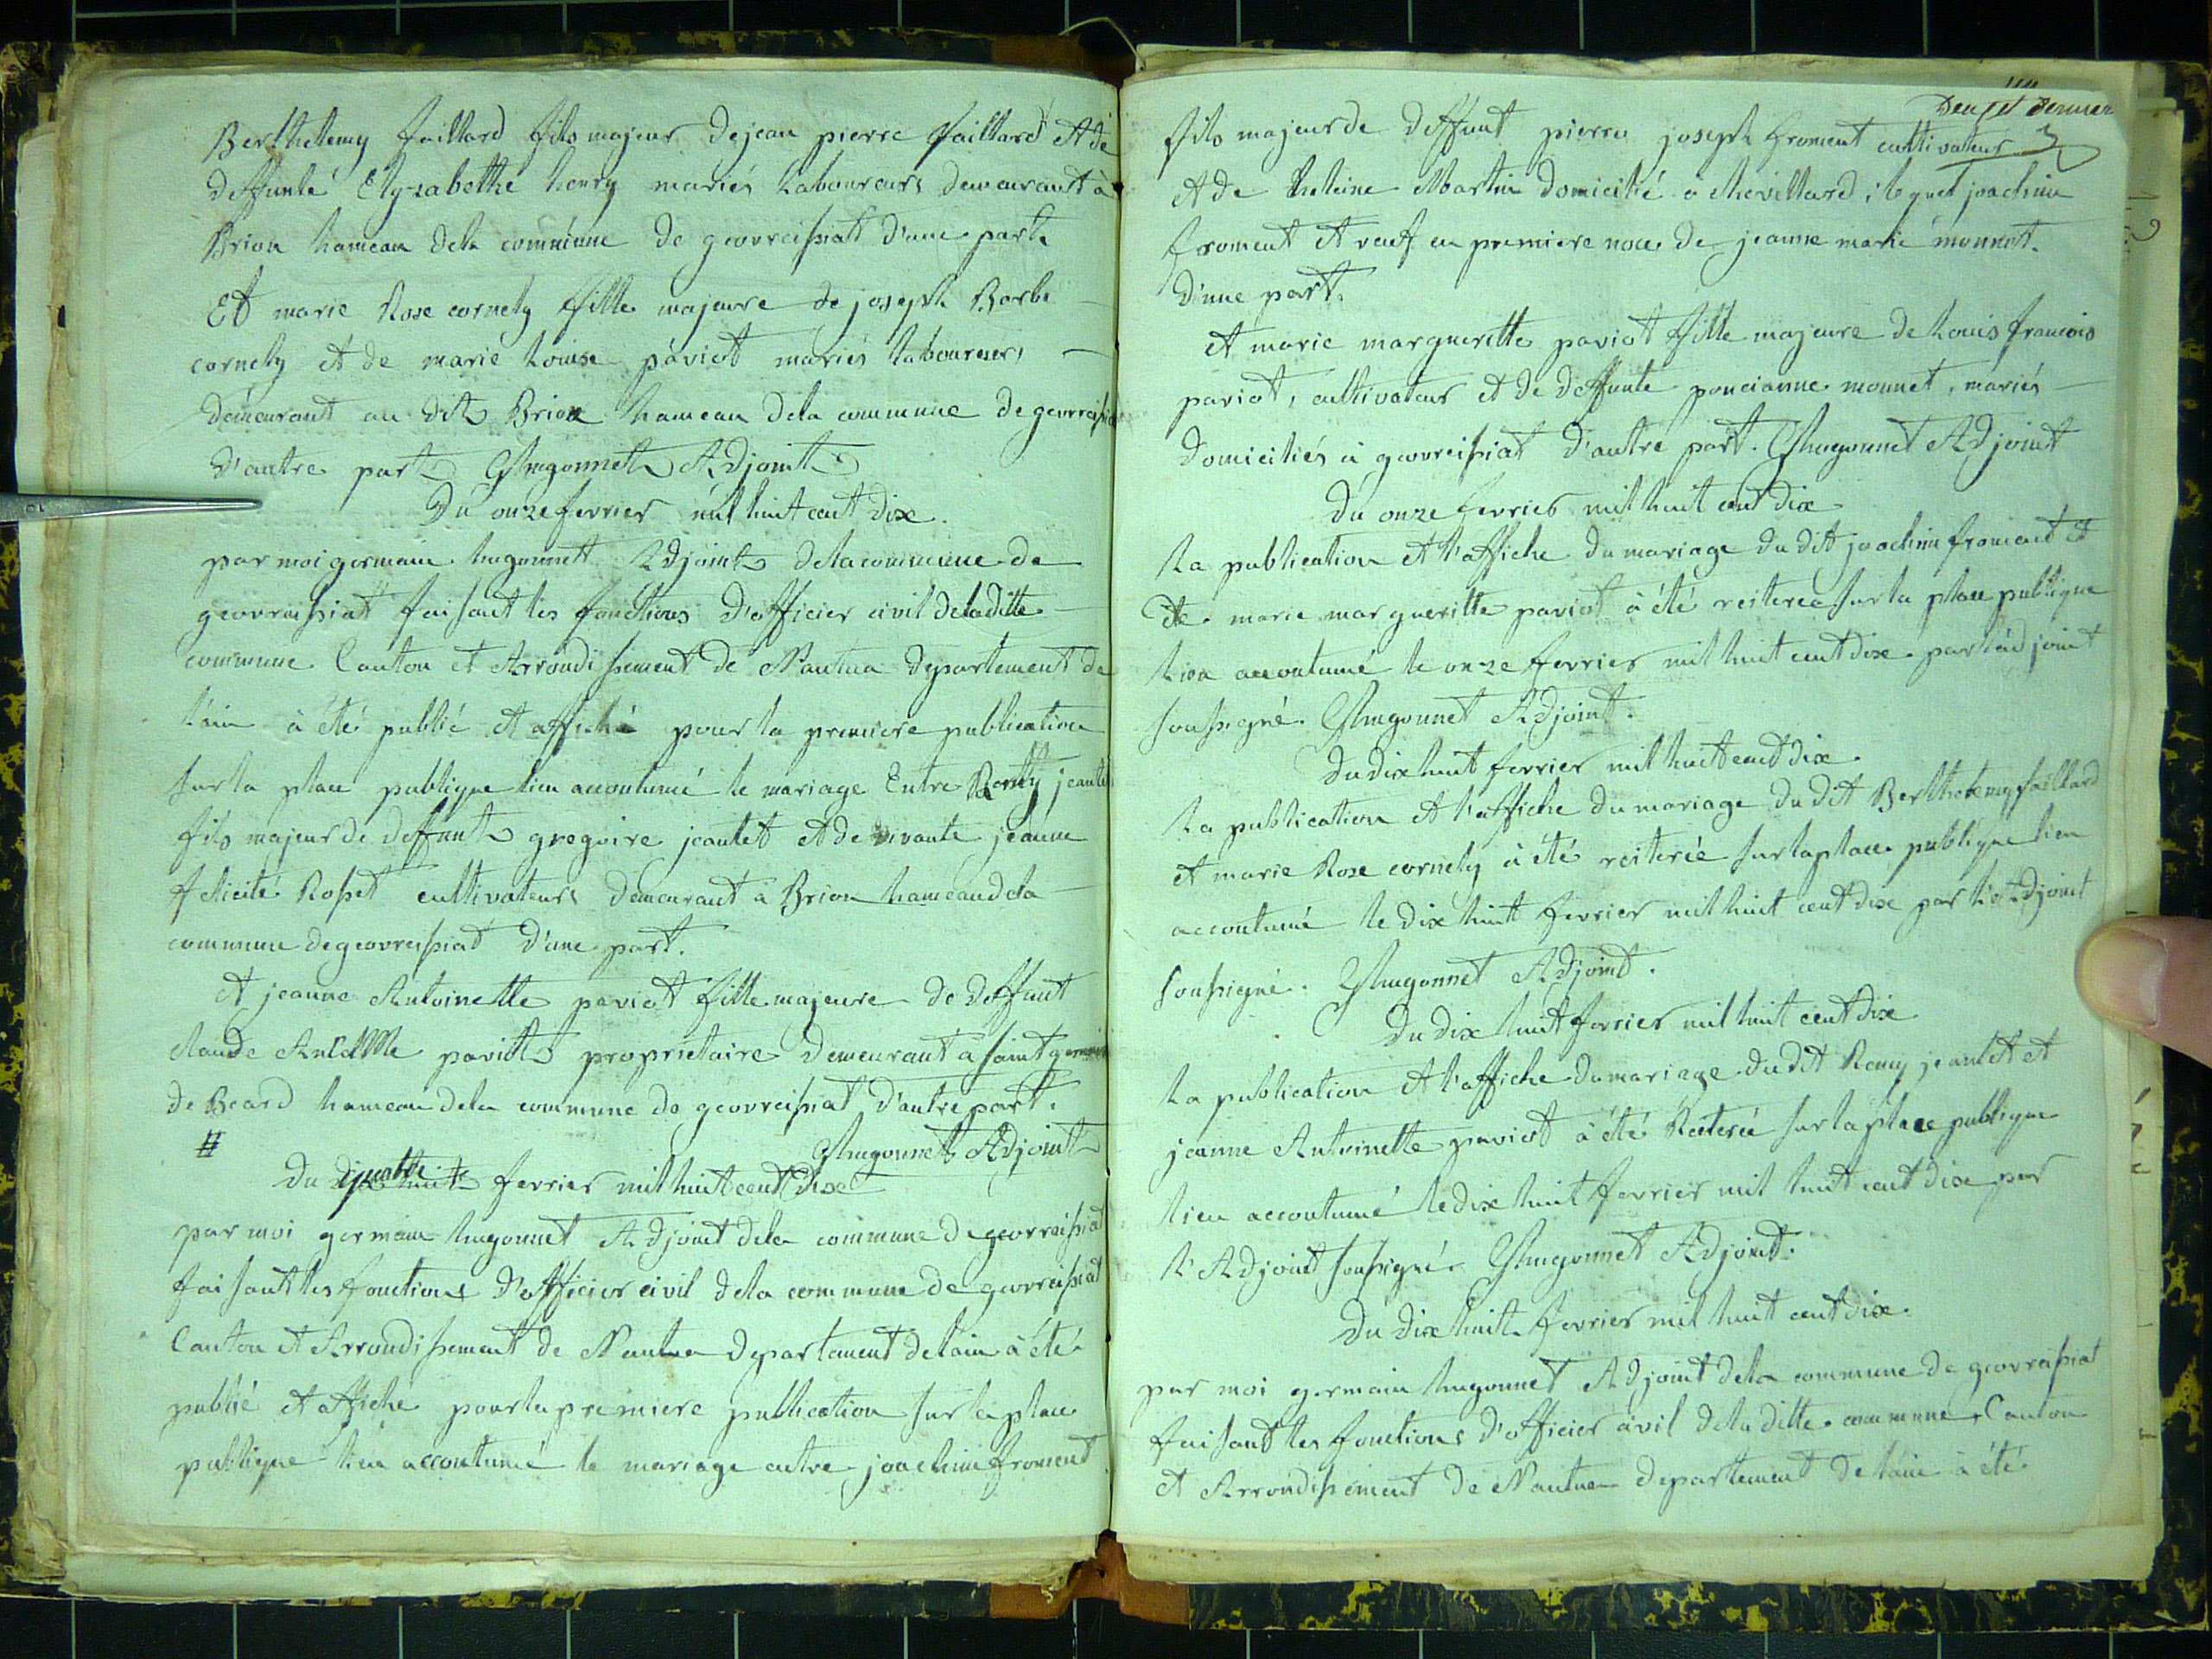 Berthelemy faillard fils majeur dejean pierre faillard et de
deffunte Elyzabethe henry mariés Laboureurs demeurant à
Brion hameau dela commune de geovreissiat d'une parte
Et marie Rose cornely fille majeure de joseph Barbe
cornely et de marie Louise paviot mariés laboureurs
demeurant au dit Brion hameau dela commune de geovreissiat
d'autre part Ghugonnet Adjoint
Du onze fevrier mil huit cent dix.
par moi germain hugonnet Adjoint delacommune de
geovreissiat faisant les fonctions d'officier civil deladitte
commune Canton et Arrondissement de Nantua departement de
l'ain à été publié et affiché pour la premiere publication
sur la place publique lieu accoutumé le mariage Entre Remy jeantet
fils majeur de deffunt gregoire jeantet et de vivante jeanne
felicité Rosset cultivateurs demeurant à Brion hameaudela
commune degeovreissiat d'une part.
et jeanne Antoinette paviot fille majeure de deffunt
claude paviot proprietaire demeurant à saint germain
de Beard hameau dela commune de geovreissiat d'autre part.
# Ghugonnet Adjoint
Du quatre fevrier mil huit cent dix
par moi germain hugonnet Adjoint dela commune de geovreissiat
faisant les fonctions d'officier civil dela commune de geovreissiat
Canton et Arrondissement de Nantua departement delain à été
publié et affiché pour la premiere publication sur la place
publique lieu accoutumé le mariage entre joachim froment
Deuxst dernier
fils majeur de deffunt pierre joseph froment cultivateur
et de heleine Martin domicilié a chevillard ; lequel joachim
froment et veuf en premiere noce de jeanne marie monnet.
d'une part.
et marie margueritte paviot fille majeure de Louis francois
paviot, cultivateur et de deffunte poncianne monnet, mariés
domiciliés à geovreissiat d'autre part. Ghugonnet Adjoint
Du onze fevrier mil huit cent dix
La publication et l'affiche du mariage du dit joachim froment et
de marie margueritte paviot à été reiterée sur la place publique
lieu accoutumé le onze fevrier mil huit cent dix par l'adjoint
soussigné. Ghugonnet Adjoint.
Du dix huit fevrier mil huit cent dix.
La publication et l'affiche du mariage du dit Berthelemy faillard
et marie Rose cornely à été reiterée sur la place publique lieu
accoutumé le dix huit fevrier mil huit cent dix par L'Adjoint
soussigné. Ghugonnet Adjoint.
Du dix huit fevrier mil huit cent dix
La publication et l'affiche du mariage du dit Remy jeantet et
jeanne Antoinette paviot à été Reiterée sur la place publique
lieu accoutumé le dix huit fevrier mil huit cent dix par
L'Adjoint soussigné. Ghugonnet Adjoint.
Du dix huit fevrier mil huit cent dix.
par moi germain hugonnet Adjoint dela commune de geovreissiat
faisant les fonctions d'officier civil dela ditte commune, Canton
et Arrondissement de Nantua departement delain à été